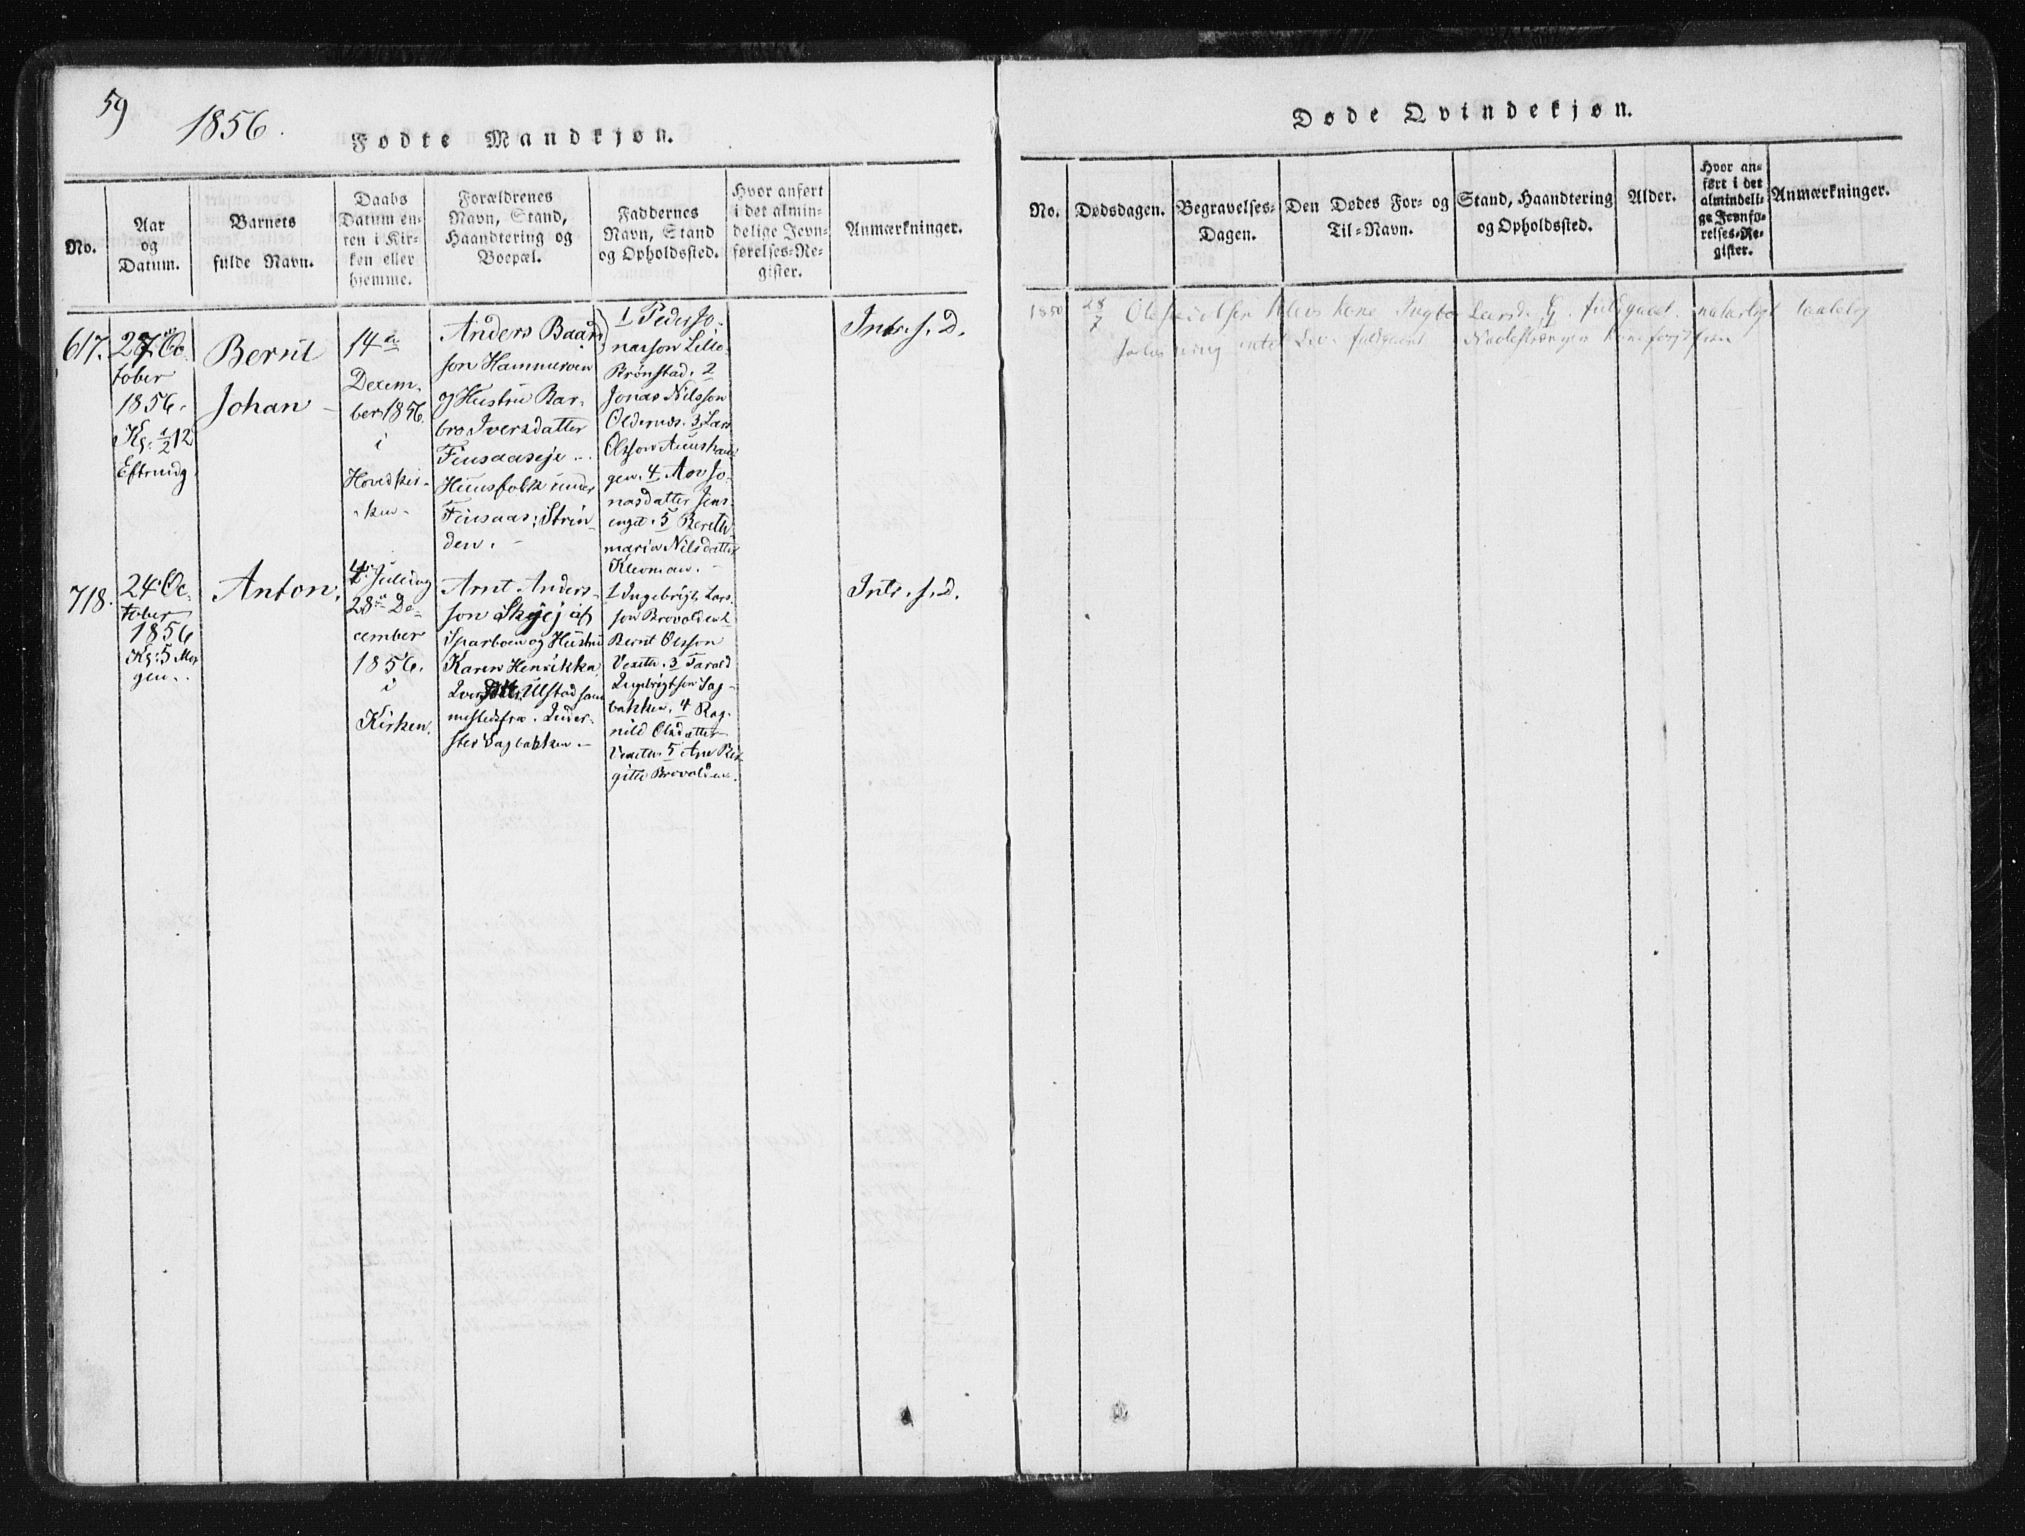 59
1856.
Fødte Mandkjøn.
No.
Aar
og
Datum.
Barnets
fulde Navn.
Daabs
Datum en-
ten i Kir-
ken eller
hjemme.
Forældrenes
Navn, Stand,
Haandtering og
Boepæl.
Faddernes
Navn, Stand
og Opholdssted.
Hvor anført
i det almin-
delige Jevn-
førelses-Re-
gister.
Anmærkninger.
617.
27 Oc-
tober
1856.
Kg: ½12
Eftmidg
Bernt
Johan
14de
Decem-
ber 1856
i
Hovedkir-
ken
Anders Baard-
son Hammeroen
og Hustru Bar-
bro Iversdatter
Finsaaseje
Huusfolk under
Finsaas, Strin-
den.
1 Peder Jo-
nasson Lille-
Brønstad. 2
Jonas Nilsson
Oldernæs. 3 Lars
Olsson
gen. 4 Jo-
nasdatter Jens-
enget. 5 Bereth
maria Nilsdatter
Intr. s. D.
718.
24 Oc-
tober
1856
Kg: 5 Mor-
gen.
Anton.
4 Juledag
28de De-
cember
1856.
i
Kirken.
Arnt Anders-
son Skjej af
Sparboen og Hustru
Karen Henrikka
Ulstad sam-
mestedsfra. Inder-
ster Sagbakken.
1 Ingebrigt Lars-
son Brovolden 2
Bernt Olsson
Vexeth. 3 Tarald
Ingebrigtson Sag-
bakken. 4 Rag-
nild Olsdatter
Vexeth. 5 Ane Bir-
gitte Brovolden.
Intr. s. D.
Døde Qvindekjøn.
No.
Dødsdagen.
Begravelses-
Dagen.
Den Dødes For- og
Til-Navn.
Stand, Haandtering
og Opholdssted.
Alder.
Hvor an-
ført i det
almindeli-
ge Jevnfø-
relses-Re-
gister.
Anmærkninger.
1850 28/7 Ole kone Larsd.